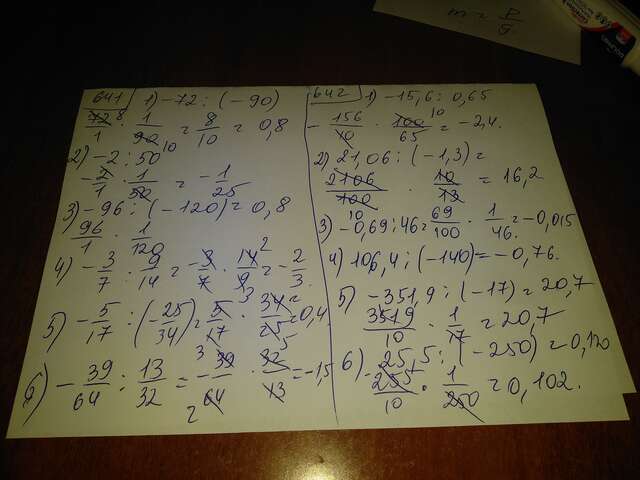 m = P/g
641 1) -72 : (-90)
72/1 · 1/90 = 8/10 = 0,8
2) -2 : 50
-2/1 · 1/50 = -1/25
3) -96 : (-120) = 0,8
96/1 · 1/120
4) -3/7 : 9/14 = -3/7 · 14/9 = -2/3.
5) -5/17 : (-25/34) = 5/17 · 34/25 = 0,4.
6) -39/64 : 13/32 = -39/64 · 32/13 = -1,5
642 1) -15,6 : 0,65
-156/10 · 100/65 = -2,4.
2) 21,06 : (-1,3) =
2106/100 · 10/13 = 16,2
3) -0,69 : 46 = 69/100 · 1/46 = -0,015
4) 106,4 : (-140) = -0,76.
5) -351,9 : (-17) = 20,7
3519/10 · 1/17 = 20,7
6) -25,5 : (-250) = 0,120
-255/10 · 1/250 = 0,102.